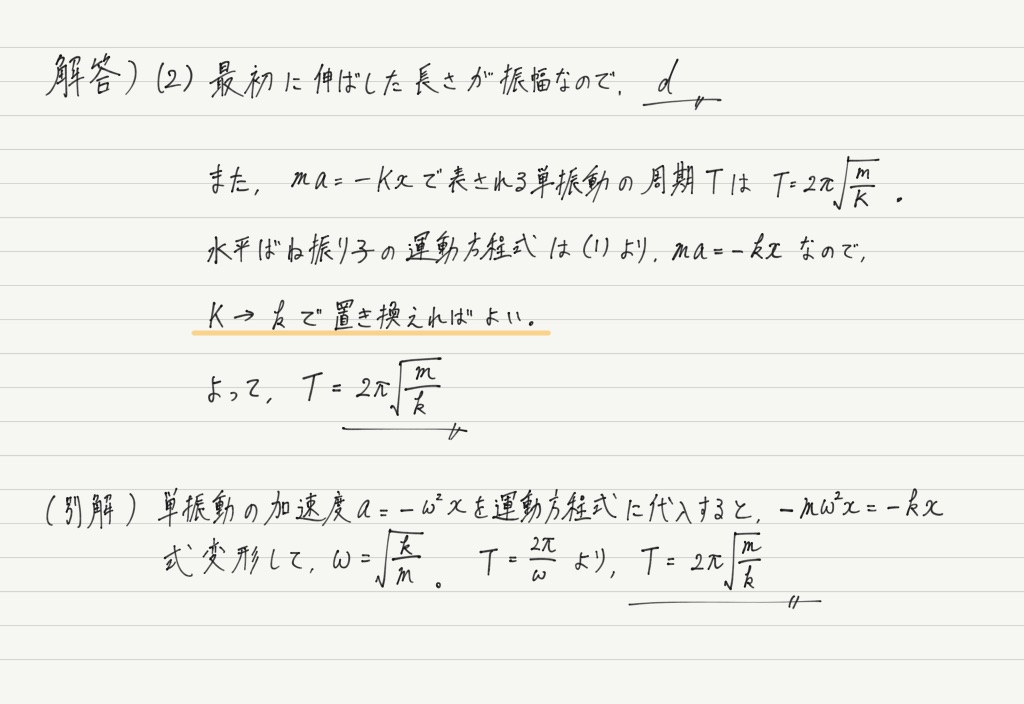 解答) (2) 最初に伸ばした長さが振幅なので, d
また, ma = -Kx で表される単振動の周期Tは T = 2π√(m/K) .
水平ばね振り子の運動方程式は(1)より, ma = -kx なので,
K → k で置き換えればよい。
よって, T = 2π√(m/k)
(別解) 単振動の加速度 a = -ω²x を運動方程式に代入すると, -mω²x = -kx
式変形して, ω = √(k/m) 。 T = 2π/ω より, T = 2π√(m/k)